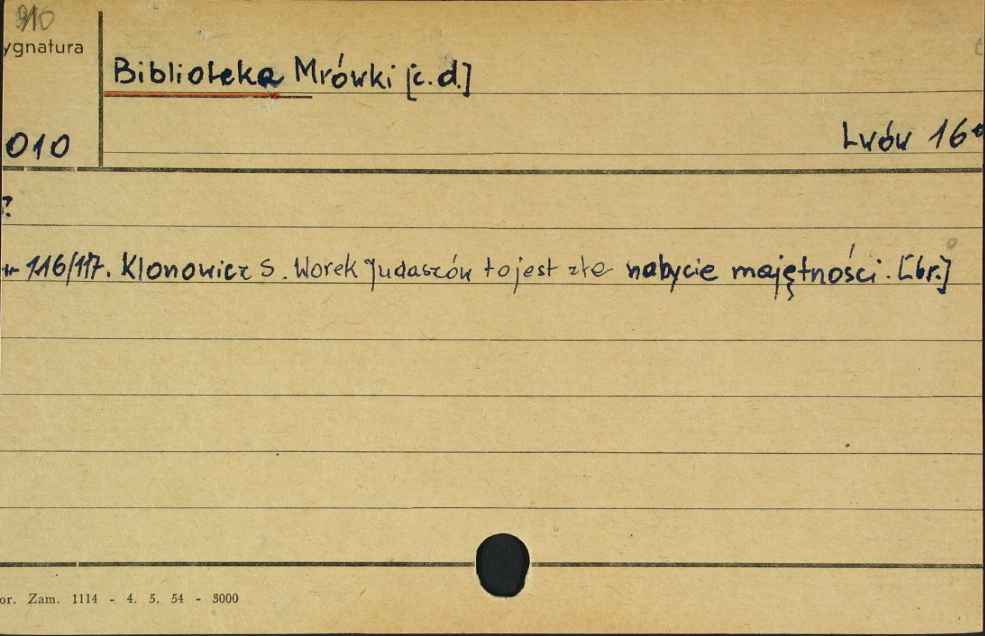 910
ygnatura
Biblioteka Mrówki [c.d.]
010
Lwów 16°
?
116/117. Klonowicz S. Worek Judaszów to jest złe nabycie majętności. [br.]
or. Zam. 1114 - 4. 5. 54 - 3000